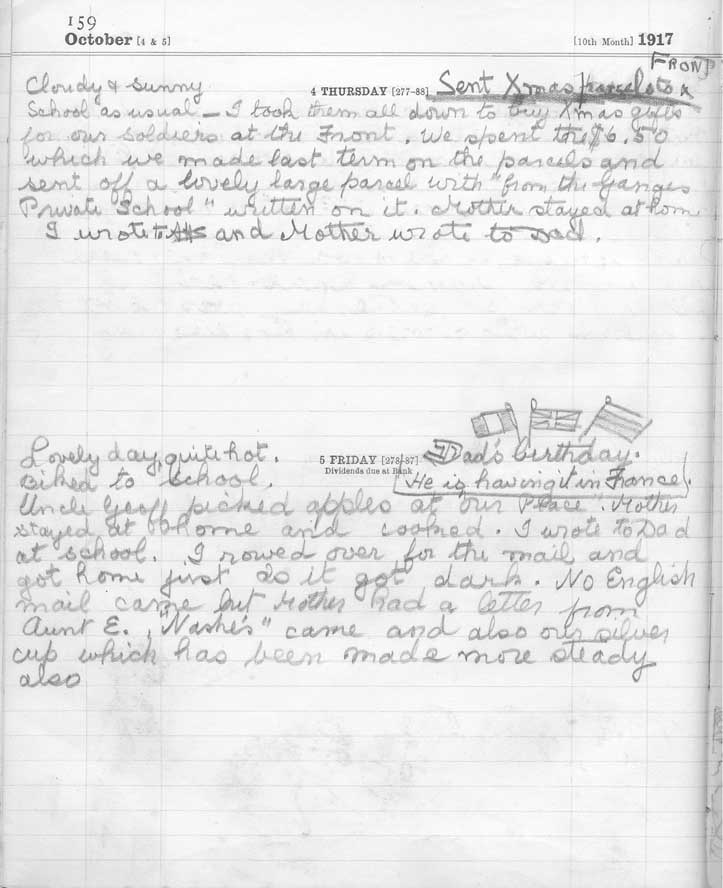 159
October [4 & 5] [10th Month] 1917
FRONT
Cloudy & Sunny 4 THURSDAY [277-88] Sent Xmas parcels to
School as usual — I took them all down to buy Xmas gifts
for our soldiers at the Front. We spent the $6.50
which we made last term on the parcels and
sent off a lovely large parcel with "from the Ganges
Private School" written on it. Mother stayed at home
I wrote to and Mother wrote to Dad.
Lovely day, quite hot. 5 FRIDAY [278-87] Dad's birthday.
Dividends due at Bank
Biked to School. He is having it in France.
Uncle Geoff picked apples at our Place. Mother
stayed at home and cooked. I wrote to Dad
at school. I rowed over for the mail and
got home just as it got dark. No English
mail came but Mother had a letter from
Aunt E. "Nashe's" came and also our silver
cup which has been made more steady
also